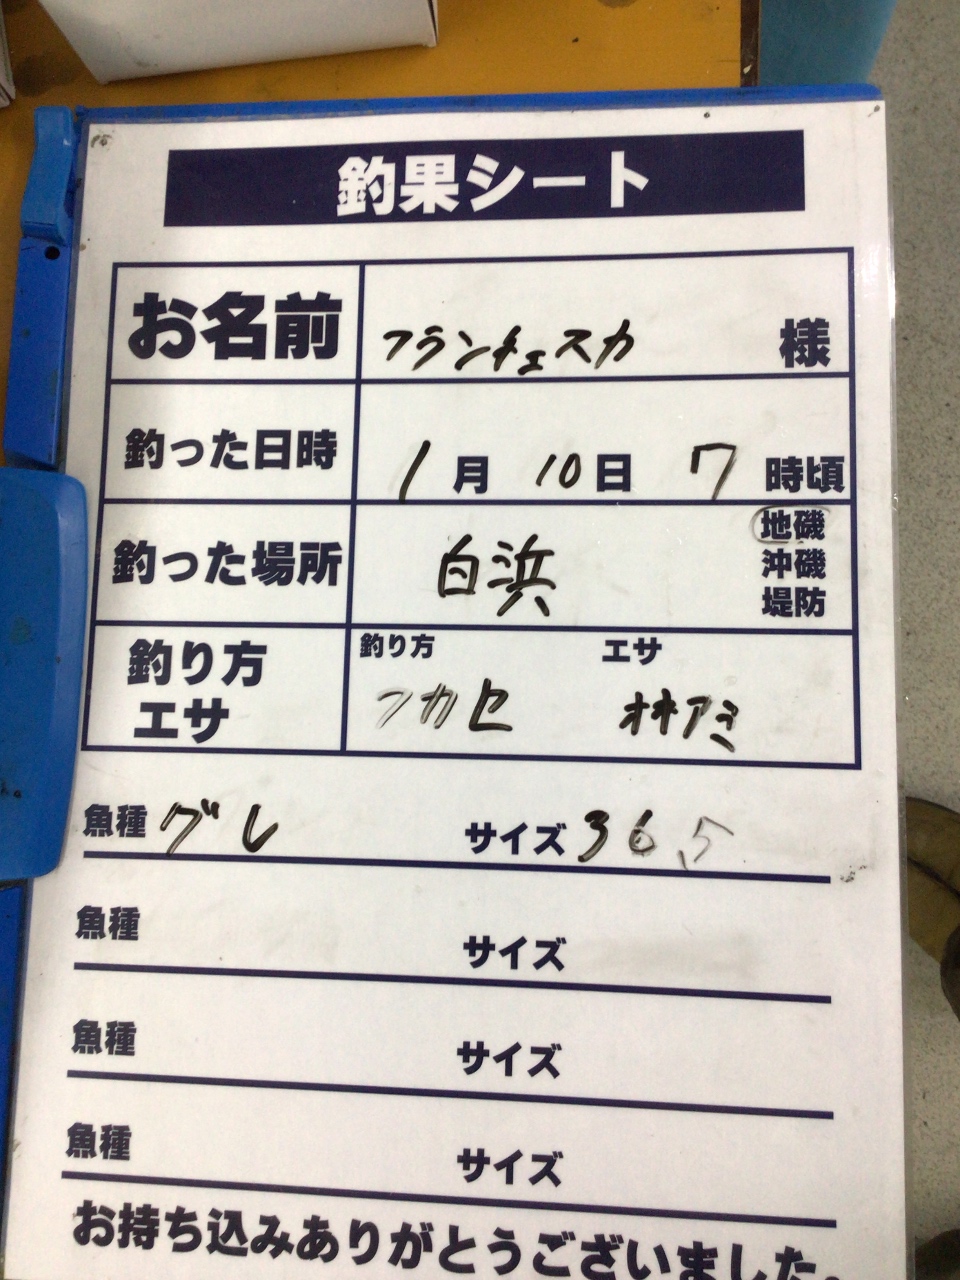 釣果シート
お名前 フランチェスカ 様
釣った日時 1月 10日 7 時頃
釣った場所 白浜 地磯
沖磯
堤防
釣り方 エサ 釣り方 エサ
フカセ オキアミ
魚種 グレ サイズ 36.5
魚種 サイズ
魚種 サイズ
魚種 サイズ
お持ち込みありがとうございました。